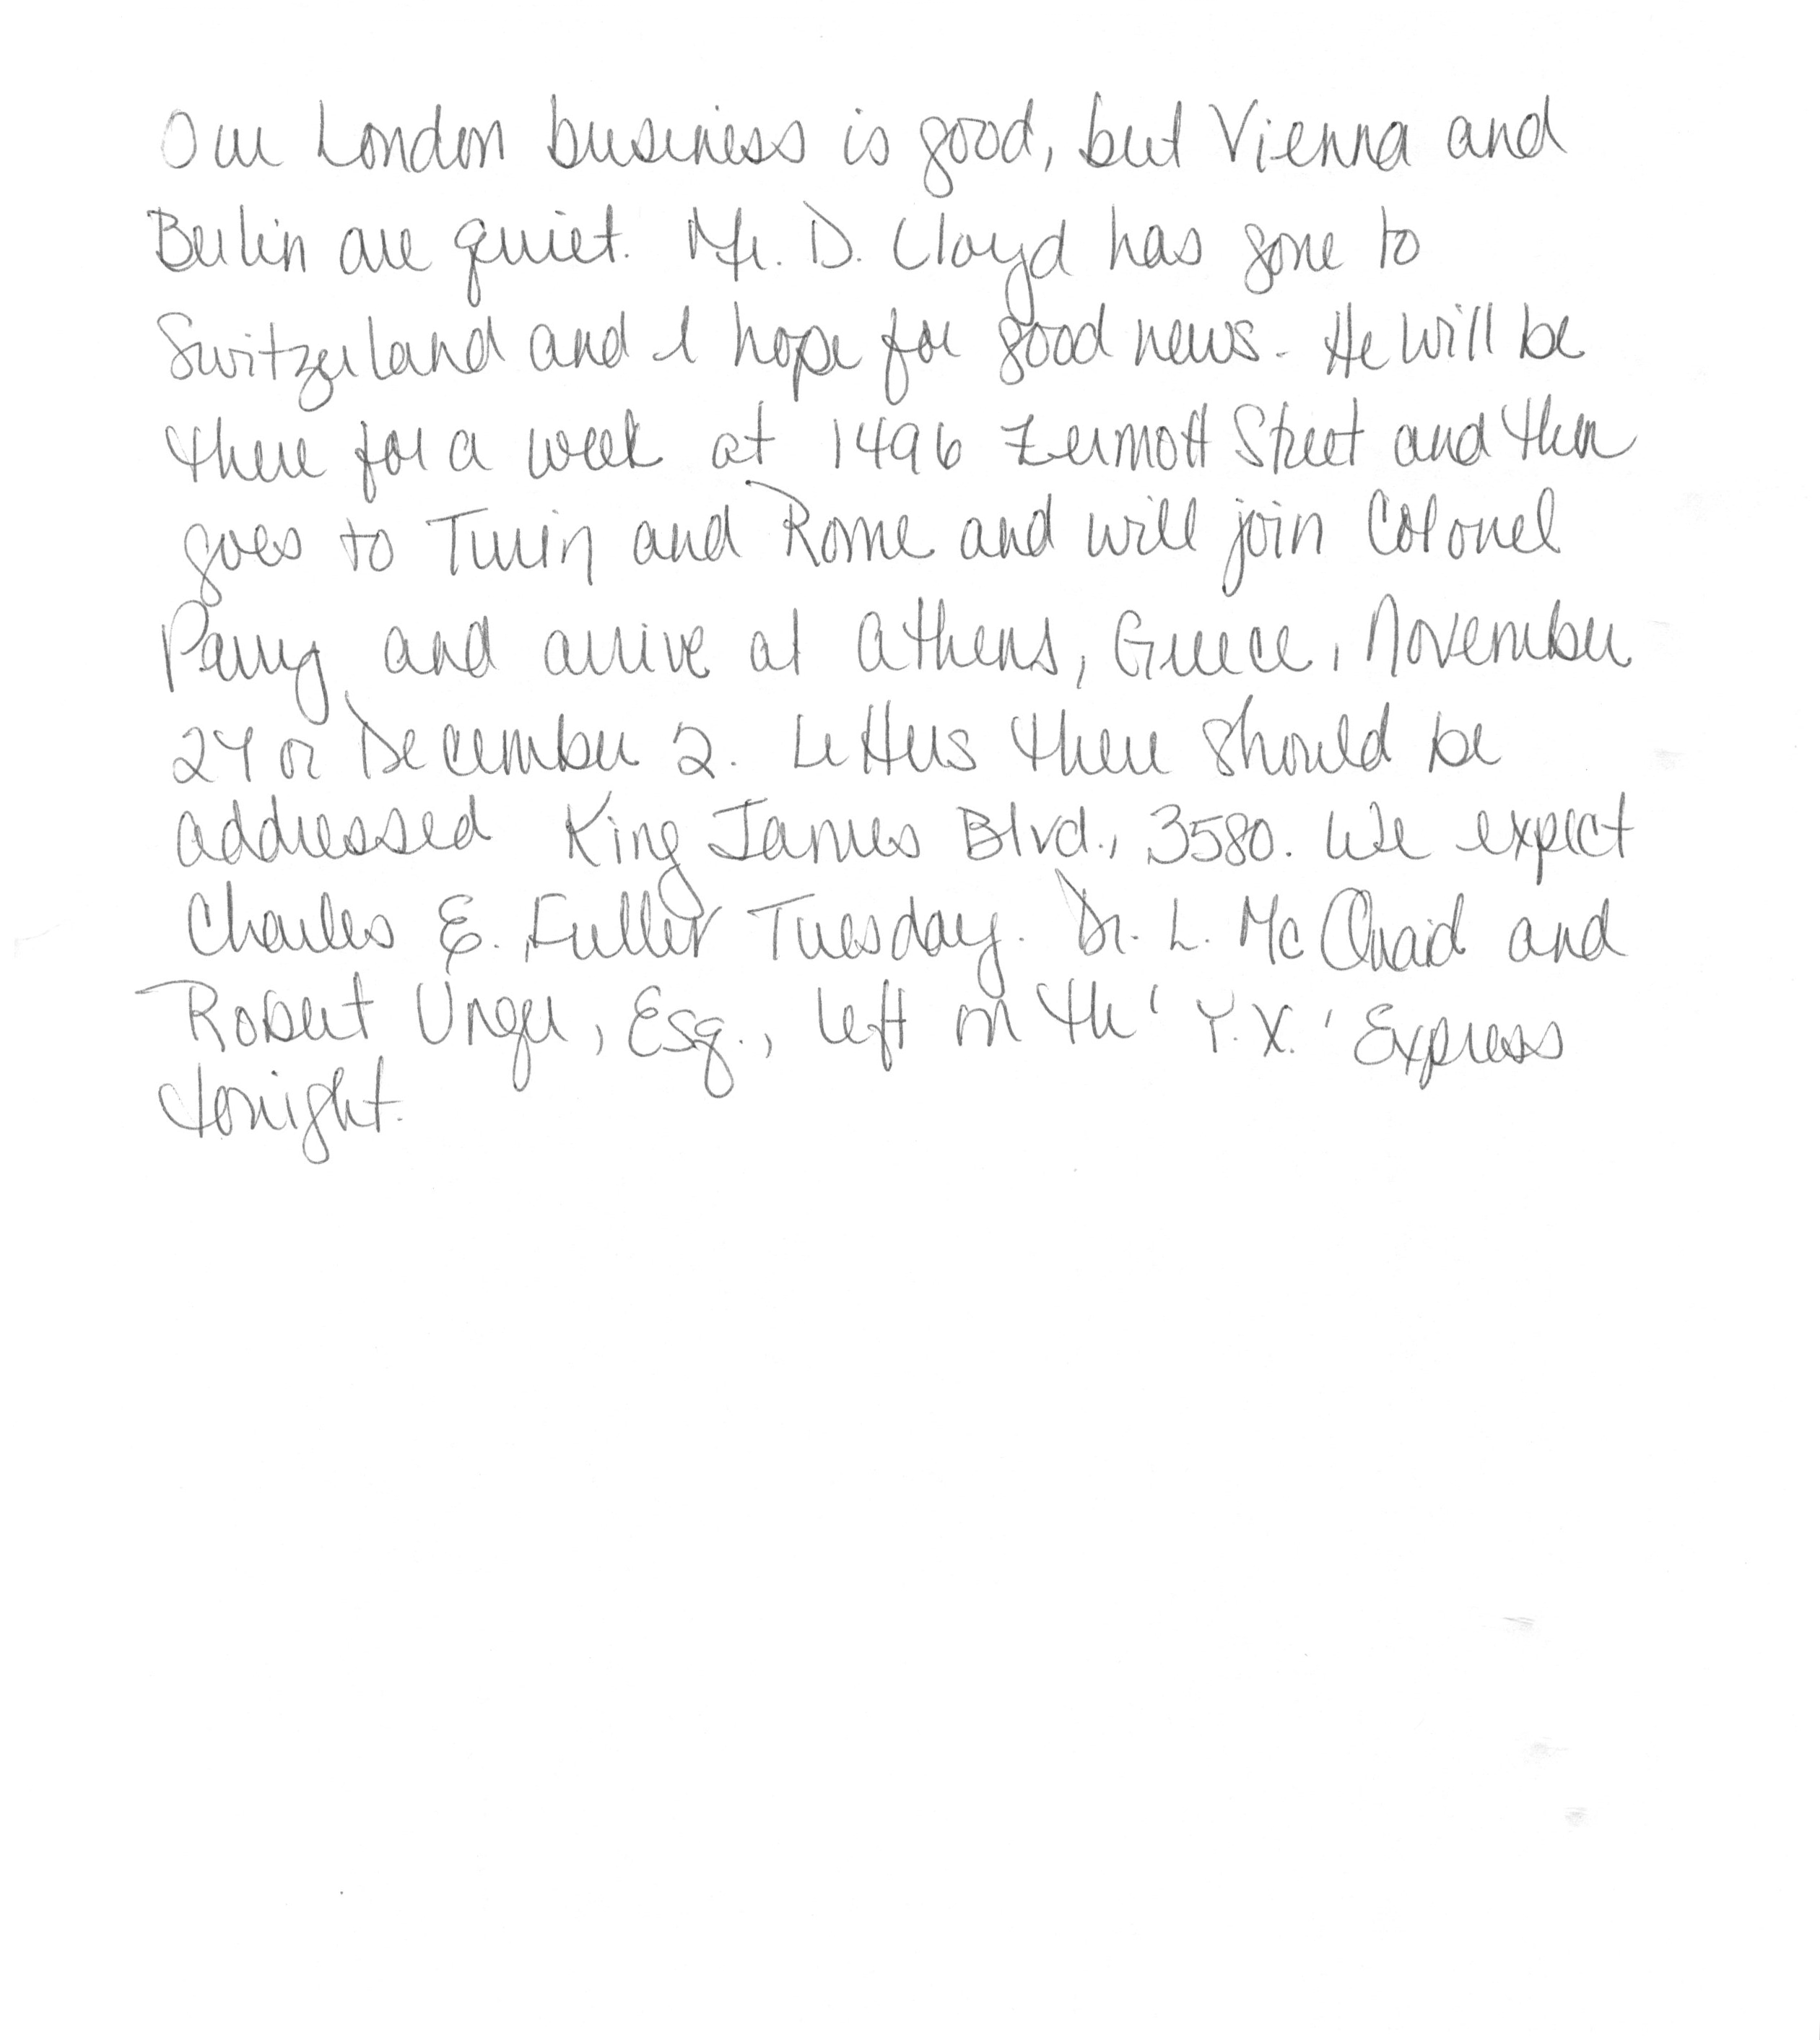 Our London business is good, but Vienna and
Berlin are quiet. Mr. D. Lloyd has gone to
Switzerland and I hope for good news. He will be
there for a week at 1496 Zermott Street and then
goes to Turin and Rome and will join Colonel
Parry and arrive at Athens, Greece, November
27 or December 2. Letters there should be
addressed King James Blvd., 3580. We expect
Charles E. Fuller Tuesday. Dr. L. McQuaid and
Robert Unger, Esq., left on the 'Y.X.' Express
tonight.